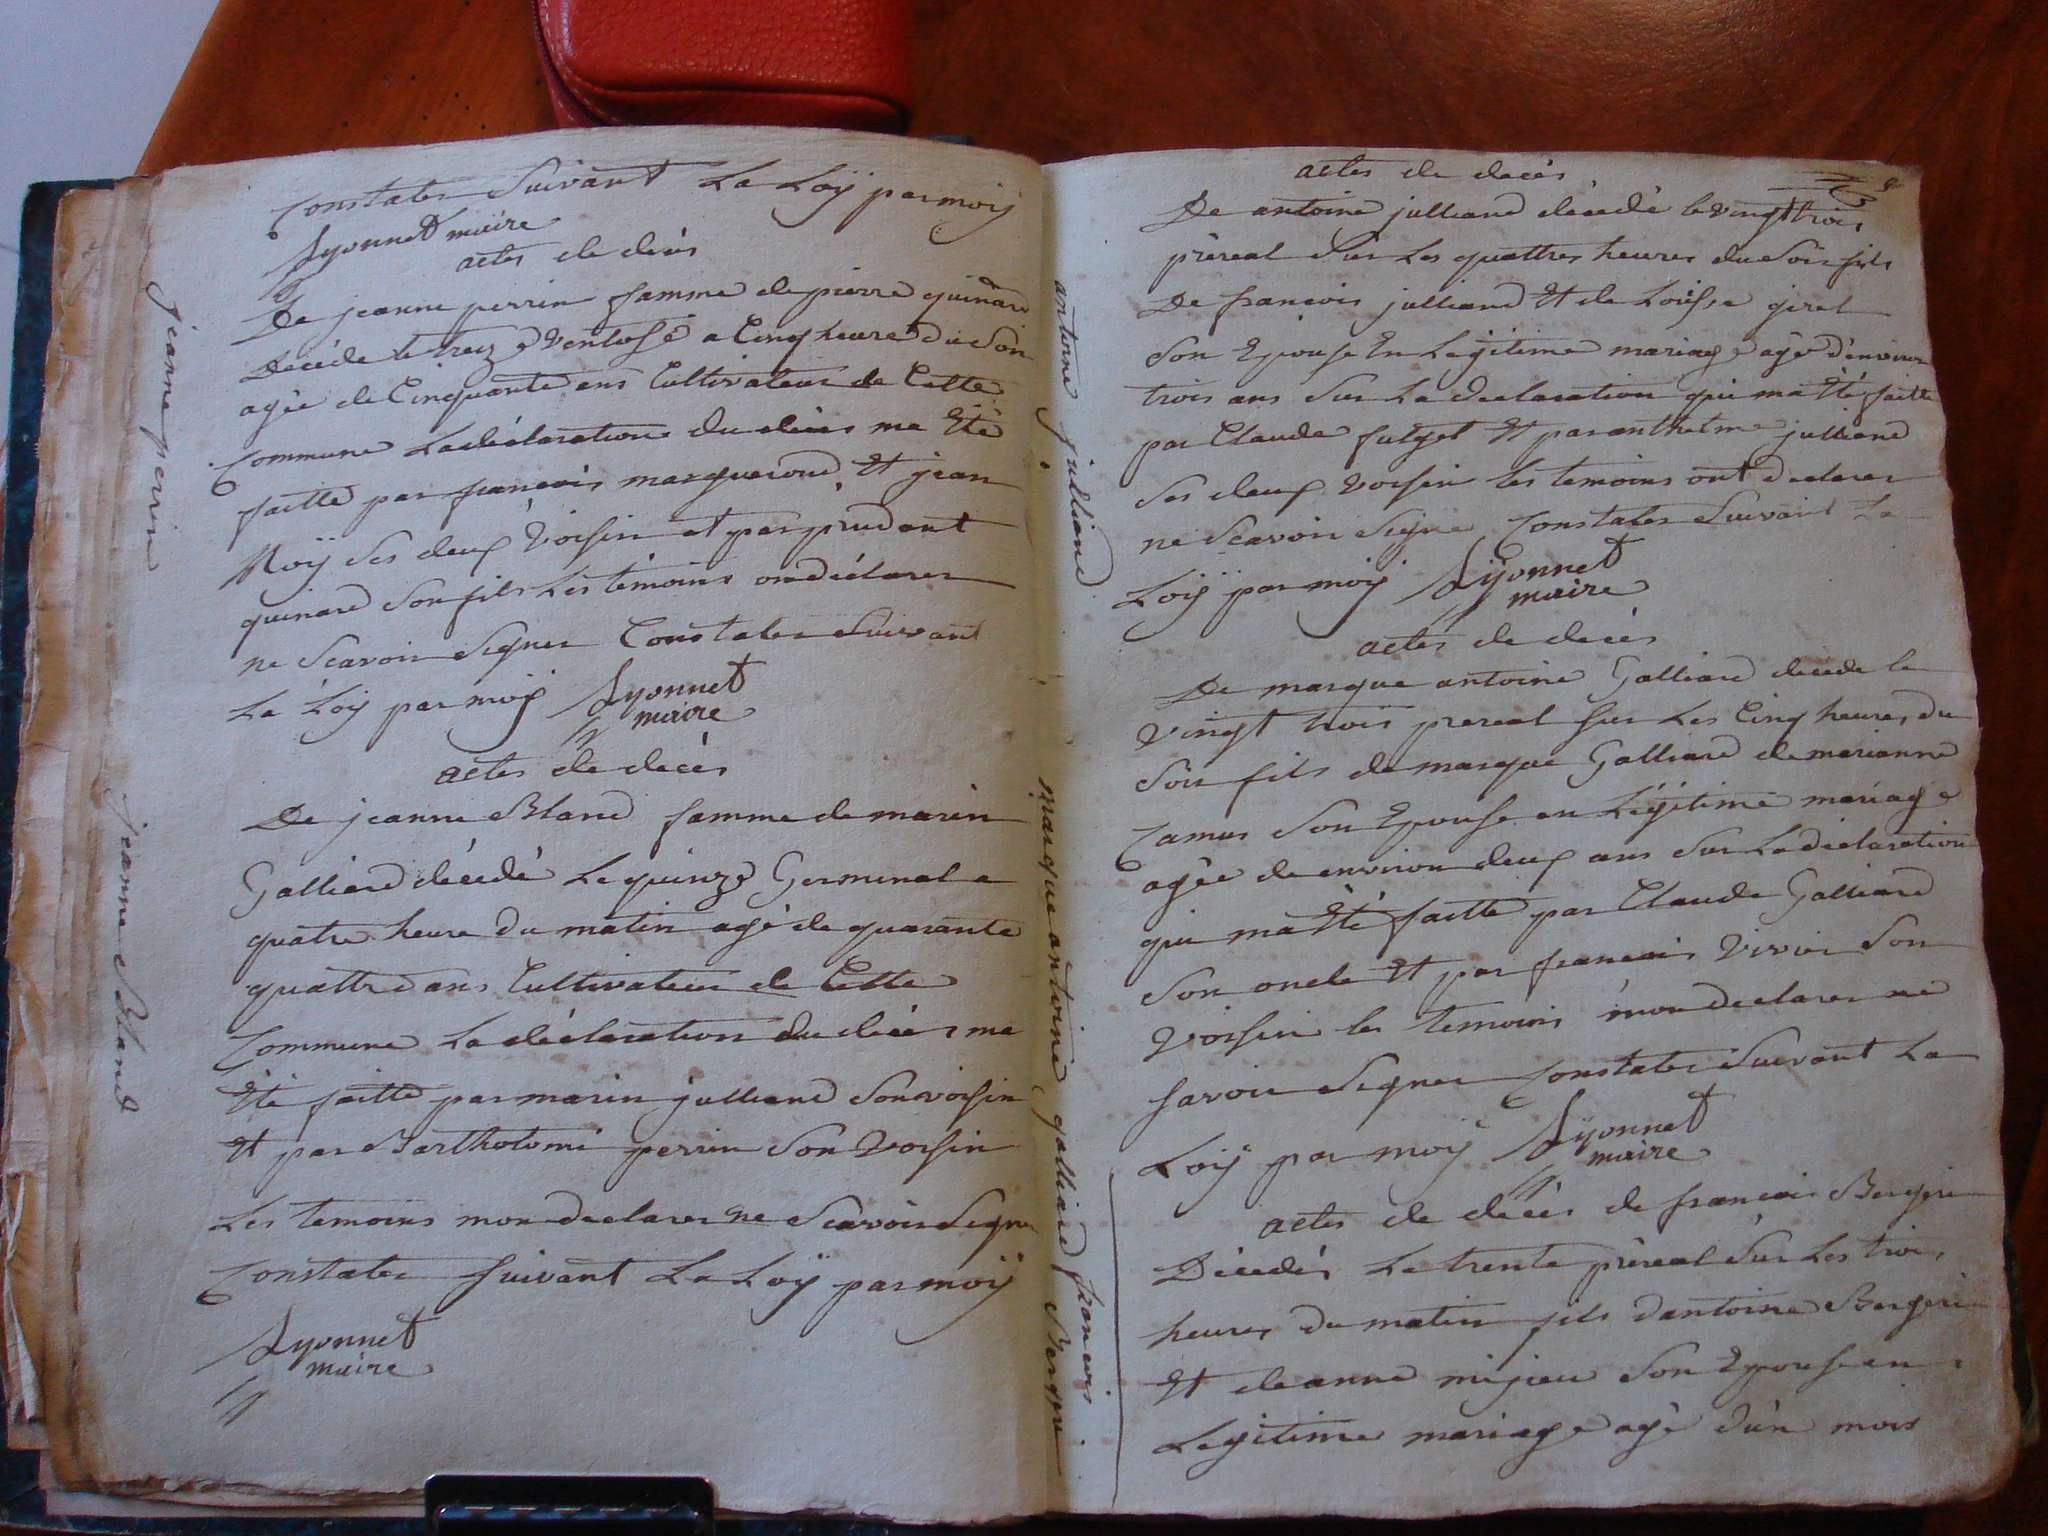 Constater Suivant La Loÿ par moÿ
Lyonnet maire
actes de déces
De jeanne perrin famme de pierre quinard
Decéde le treize ventose a Cinq heure du Soir
agée de Cinquante ans Cultivateur de Cette
Commune La déclaration du déces ma Eté
faitte par francois marquerond Et jean
Roÿ Ses deux Voisin et par prudant
quinard Son fils Les témoins on déclarer
ne Scavoir Signer Constater Suivant
La Loÿ par moÿ Lyonnet
maire
actes de decès
De jeanne Bland famme de marin
Galliard décedé Le quinze Germinal a
quatre heure du matin agé de quarante
quattre ans Cultivateur de Cette
Commune La déclaration du décés ma
Eté faitte par marin julliard Son voisin
Et par Bartholomé perrin Son Voisin
Les temoins mon declarer ne Scavoir Signer
Constater Suivant La Loÿ par moÿ
Lyonnet
maire
jeanne perrin
jeanne Bland
actes de decès
De antoine julliand décedé le vingt trois
prereal Sur Les quattres heures du Soir fils
De francois julliand Et de Loüisse giret
Son Epouse En Legitime mariage agé d'environ
trois ans Sur La declaration qui ma Eté faitte
par Claude Et par anthelme julliand
Ses deux Voisin les temoins ont declarer
ne Scavoir Signe Constater Suivant La
Loÿ par moÿ Lÿonnet
maire
actes de decès
De marque antoine Galliard decede le
vingt trois prereal Sur Les Cinq heures du
Soir fils de marque Galliard de marianne
Camus Son Epouse en Légitime mariage
agée de environ deux ans Sur La déclaration
qui ma Eté faitte par Claude Galliard
Son oncle Et par francois Son
Voisin les temoins mon declarer ne
Savoir Signer Constater Suivant La
Loÿ par moÿ Lÿonnet
maire
actes de decès de francois Bergeri
Décedés Le trente prereal Sur Les trois
heures du matin fils dantoine Bergeri
Et deanne mijeu Son Epouse en
Legitime mariage agé d'un mois
antoine julliand
marque antoine galliard
francois Bergeri